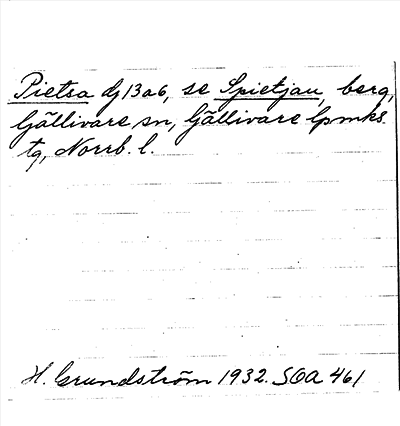 Pietsa dj 13 a6, se Spietjau, berg,
Gällivare sn, Gällivare lpmks.
tg, Norrb. l.
H. Grundström 1932. SOA 461